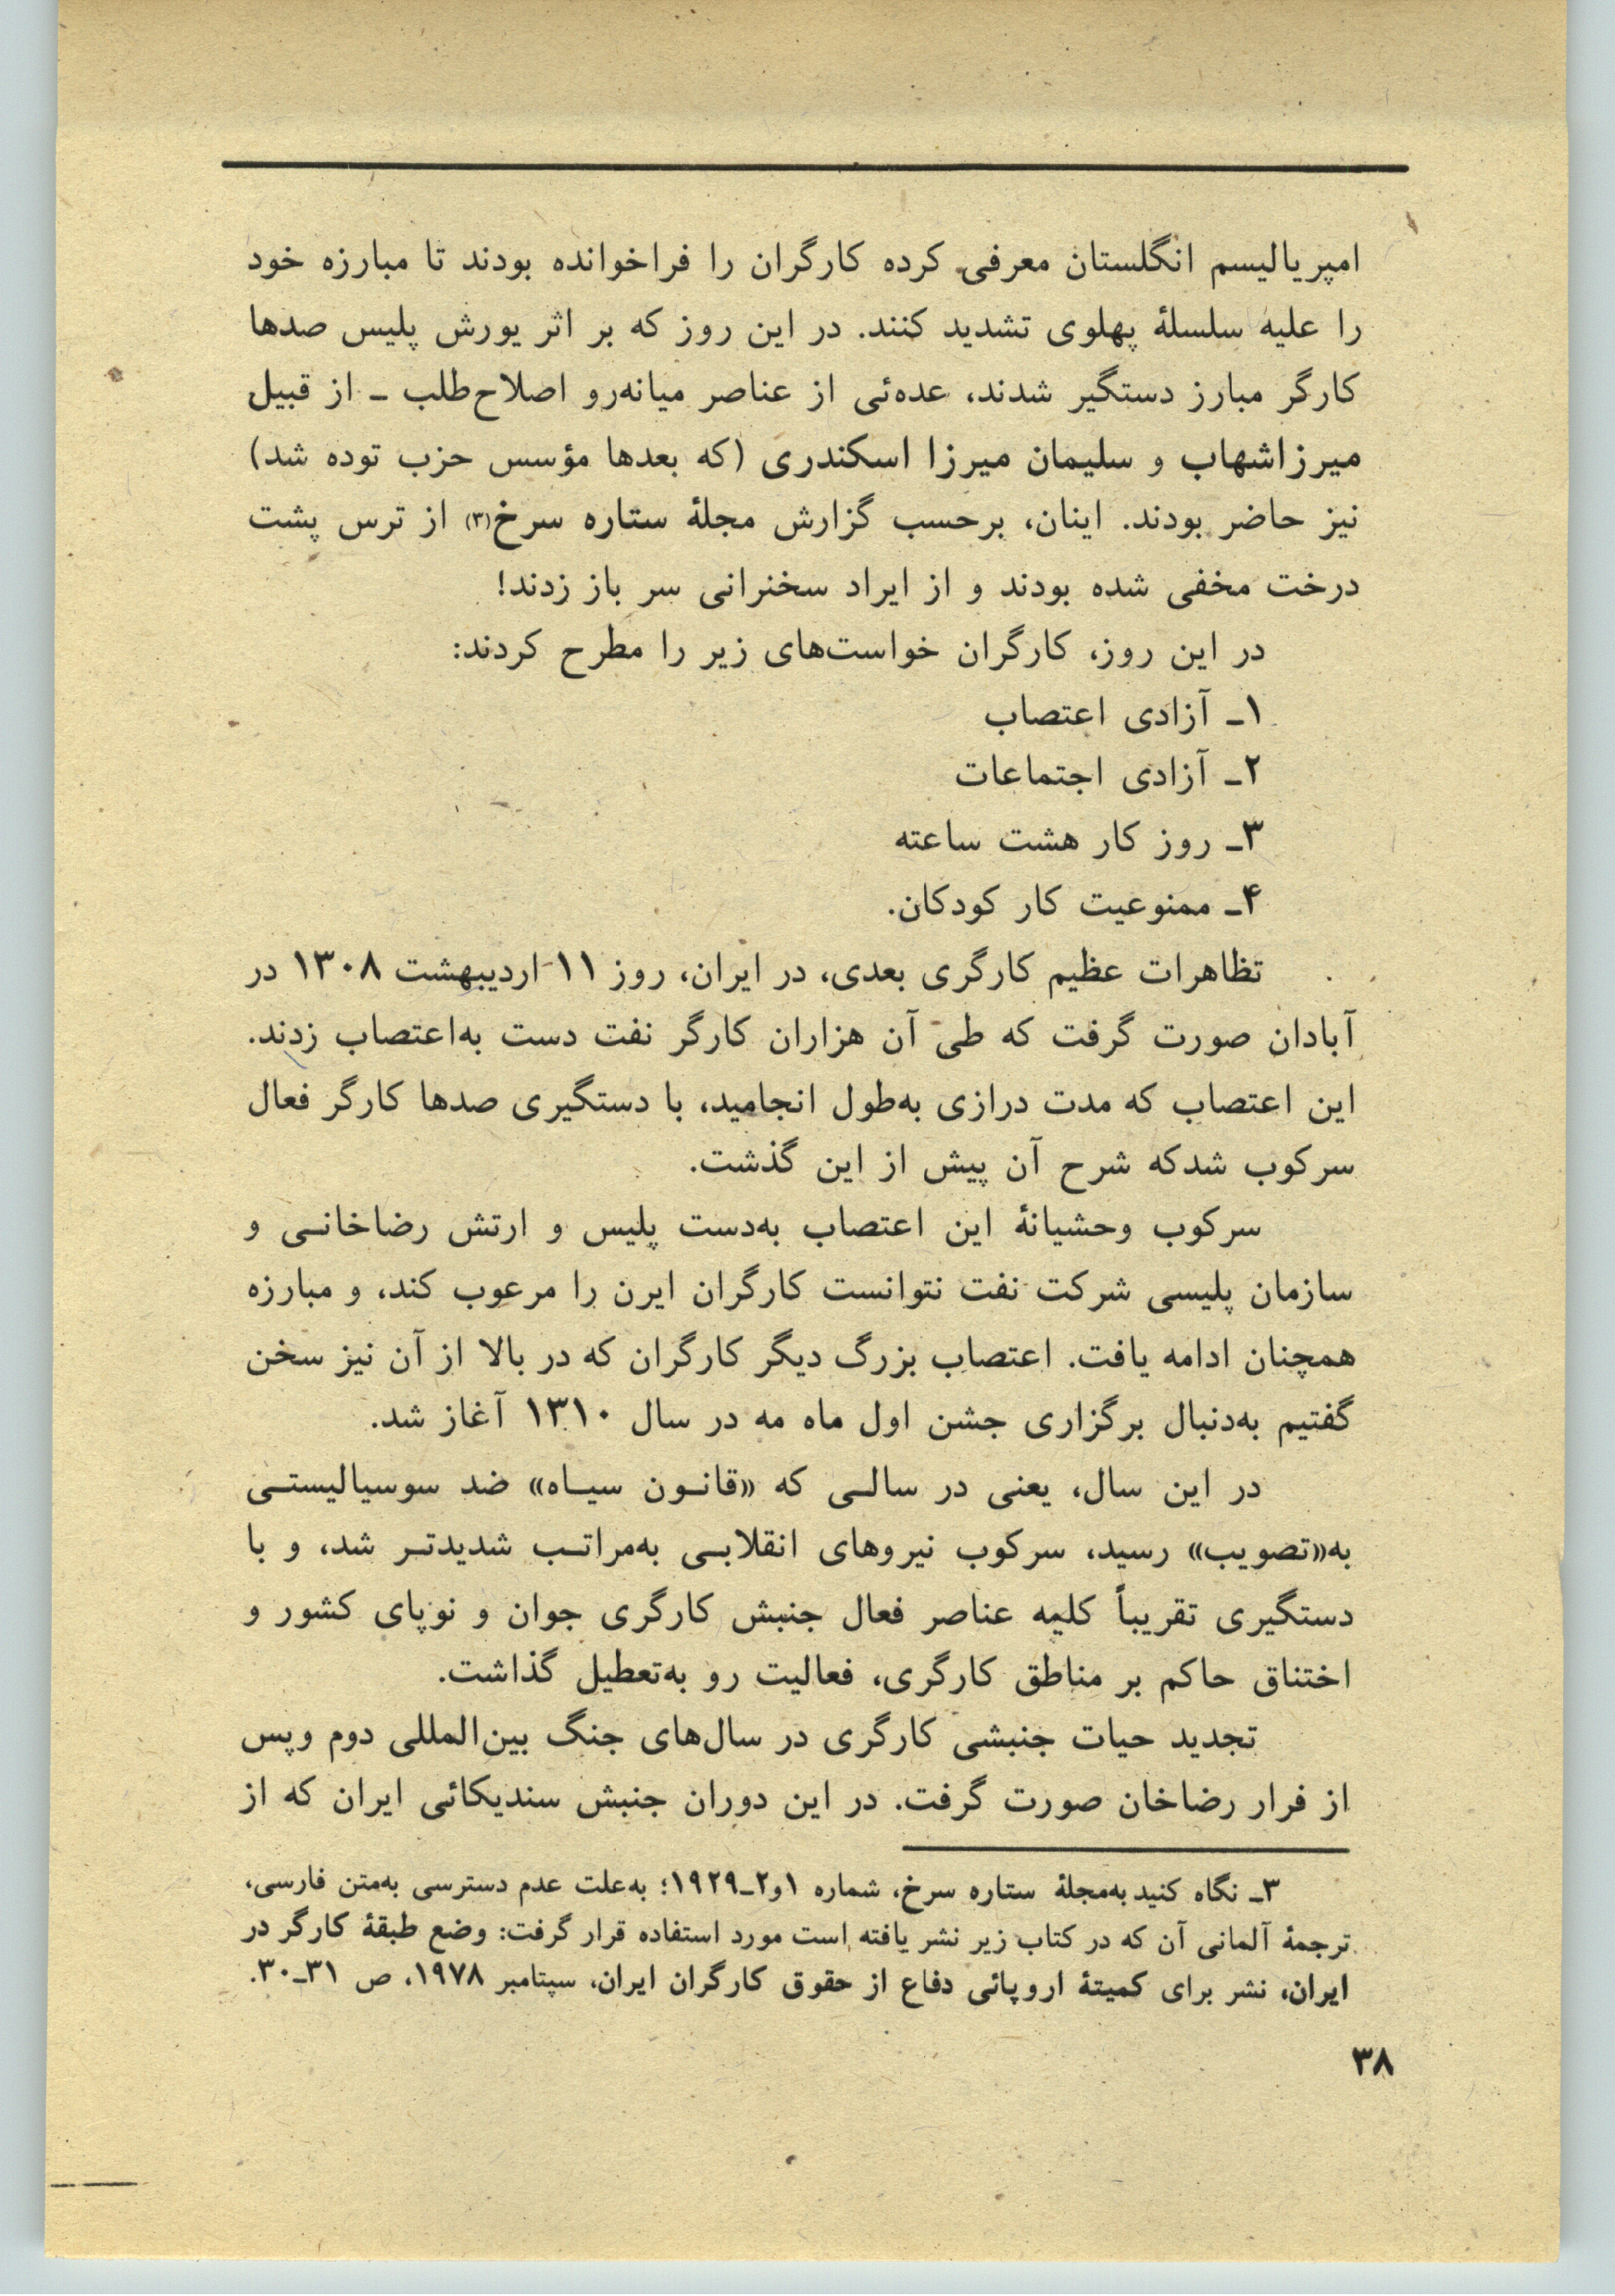 امپریالیسم انگلستان معرفی کرده کارگران را فراخوانده بودند تا مبارزه خود
را علیه سلسلهٔ پهلوی تشدید کنند. در این روز که بر اثر یورش پلیس صدها
کارگر مبارز دستگیر شدند، عده‌ئی از عناصر میانه‌رو اصلاح‌طلب ـ از قبیل
میرزاشهاب و سلیمان میرزا اسکندری (که بعدها مؤسس حزب توده شد)
نیز حاضر بودند. اینان، برحسب گزارش مجلهٔ ستاره سرخ(۳) از ترس پشت
درخت مخفی شده بودند و از ایراد سخنرانی سر باز زدند!
در این روز، کارگران خواست‌های زیر را مطرح کردند:
۱ـ آزادی اعتصاب
۲ـ آزادی اجتماعات
۳ـ روز کار هشت ساعته
۴ـ ممنوعیت کار کودکان.
تظاهرات عظیم کارگری بعدی، در ایران، روز ۱۱ اردیبهشت ۱۳۰۸ در
آبادان صورت گرفت که طی آن هزاران کارگر نفت دست به‌اعتصاب زدند.
این اعتصاب که مدت درازی به‌طول انجامید، با دستگیری صدها کارگر فعال
سرکوب شدکه شرح آن پیش از این گذشت.
سرکوب وحشیانهٔ این اعتصاب به‌دست پلیس و ارتش رضاخانـی و
سازمان پلیسی شرکت نفت نتوانست کارگران ایرن را مرعوب کند، و مبارزه
همچنان ادامه یافت. اعتصاب بزرگ دیگر کارگران که در بالا از آن نیز سخن
گفتیم به‌دنبال برگزاری جشن اول ماه مه در سال ۱۳۱۰ آغاز شد.
در این سال، یعنی در سالـی که «قانـون سیـاه» ضد سوسیالیستـی
به«تصویب» رسید، سرکوب نیروهای انقلابـی به‌مراتـب شدیدتـر شد، و با
دستگیری تقریباً کلیه عناصر فعال جنبش کارگری جوان و نوپای کشور و
اختناق حاکم بر مناطق کارگری، فعالیت رو به‌تعطیل گذاشت.
تجدید حیات جنبشی کارگری در سال‌های جنگ بین‌المللی دوم وپس
از فرار رضاخان صورت گرفت. در این دوران جنبش سندیکائی ایران که از
۳ـ نگاه کنید به‌مجلهٔ ستاره سرخ، شماره ۱و۲ـ۱۹۲۹؛ به‌علت عدم دسترسی به‌متن فارسی،
ترجمهٔ آلمانی آن که در کتاب زیر نشر یافته است مورد استفاده قرار گرفت: وضع طبقهٔ کارگر در
ایران، نشر برای کمیتهٔ اروپائی دفاع از حقوق کارگران ایران، سپتامبر ۱۹۷۸، ص ۳۱ـ۳۰.
۳۸